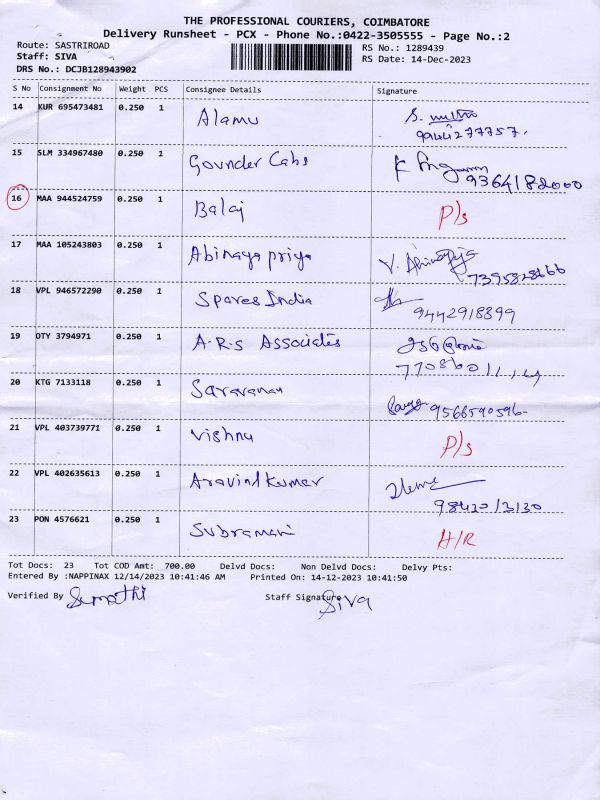 THE PROFESSIONAL COURIERS, COIMBATORE
Delivery Runsheet - PCX - Phone No.:0422-3505555 - Page No.:2
Route: SASTRIROAD
RS No.: 1289439
Staff: SIVA
RS Date: 14-Dec-2023
DRS No.: DCJB128943902
S No Consignment No Weight PCS Consignee Details Signature
14 KUR 695473481 0.250 1 Alamu
9944277757.
15 SLM 334967480 0.250 1 Gounder Cabs K
9364182000
16 MAA 944524759 0.250 1 Balaj P/s
17 MAA 105243803 0.250 1 Abinaya priya V.
7395828666
18 VPL 946572290 0.250 1 Spares India
9442918399
19 OTY 3794971 0.250 1 A.R.S Associates
20 KTG 7133118 0.250 1 Saravanan
9566590596
21 VPL 403739771 0.250 1 Vishnu P/s
22 VPL 402635613 0.250 1 Aravind Kumar
23 PON 4576621 0.250 1 Subramani H/R
Tot Docs: 23 Tot COD Amt: 700.00 Delvd Docs: Non Delvd Docs: Delvy Pts:
Entered By :NAPPINAX 12/14/2023 10:41:46 AM Printed On: 14-12-2023 10:41:50
Verified By Sumathi Staff Signature Siva